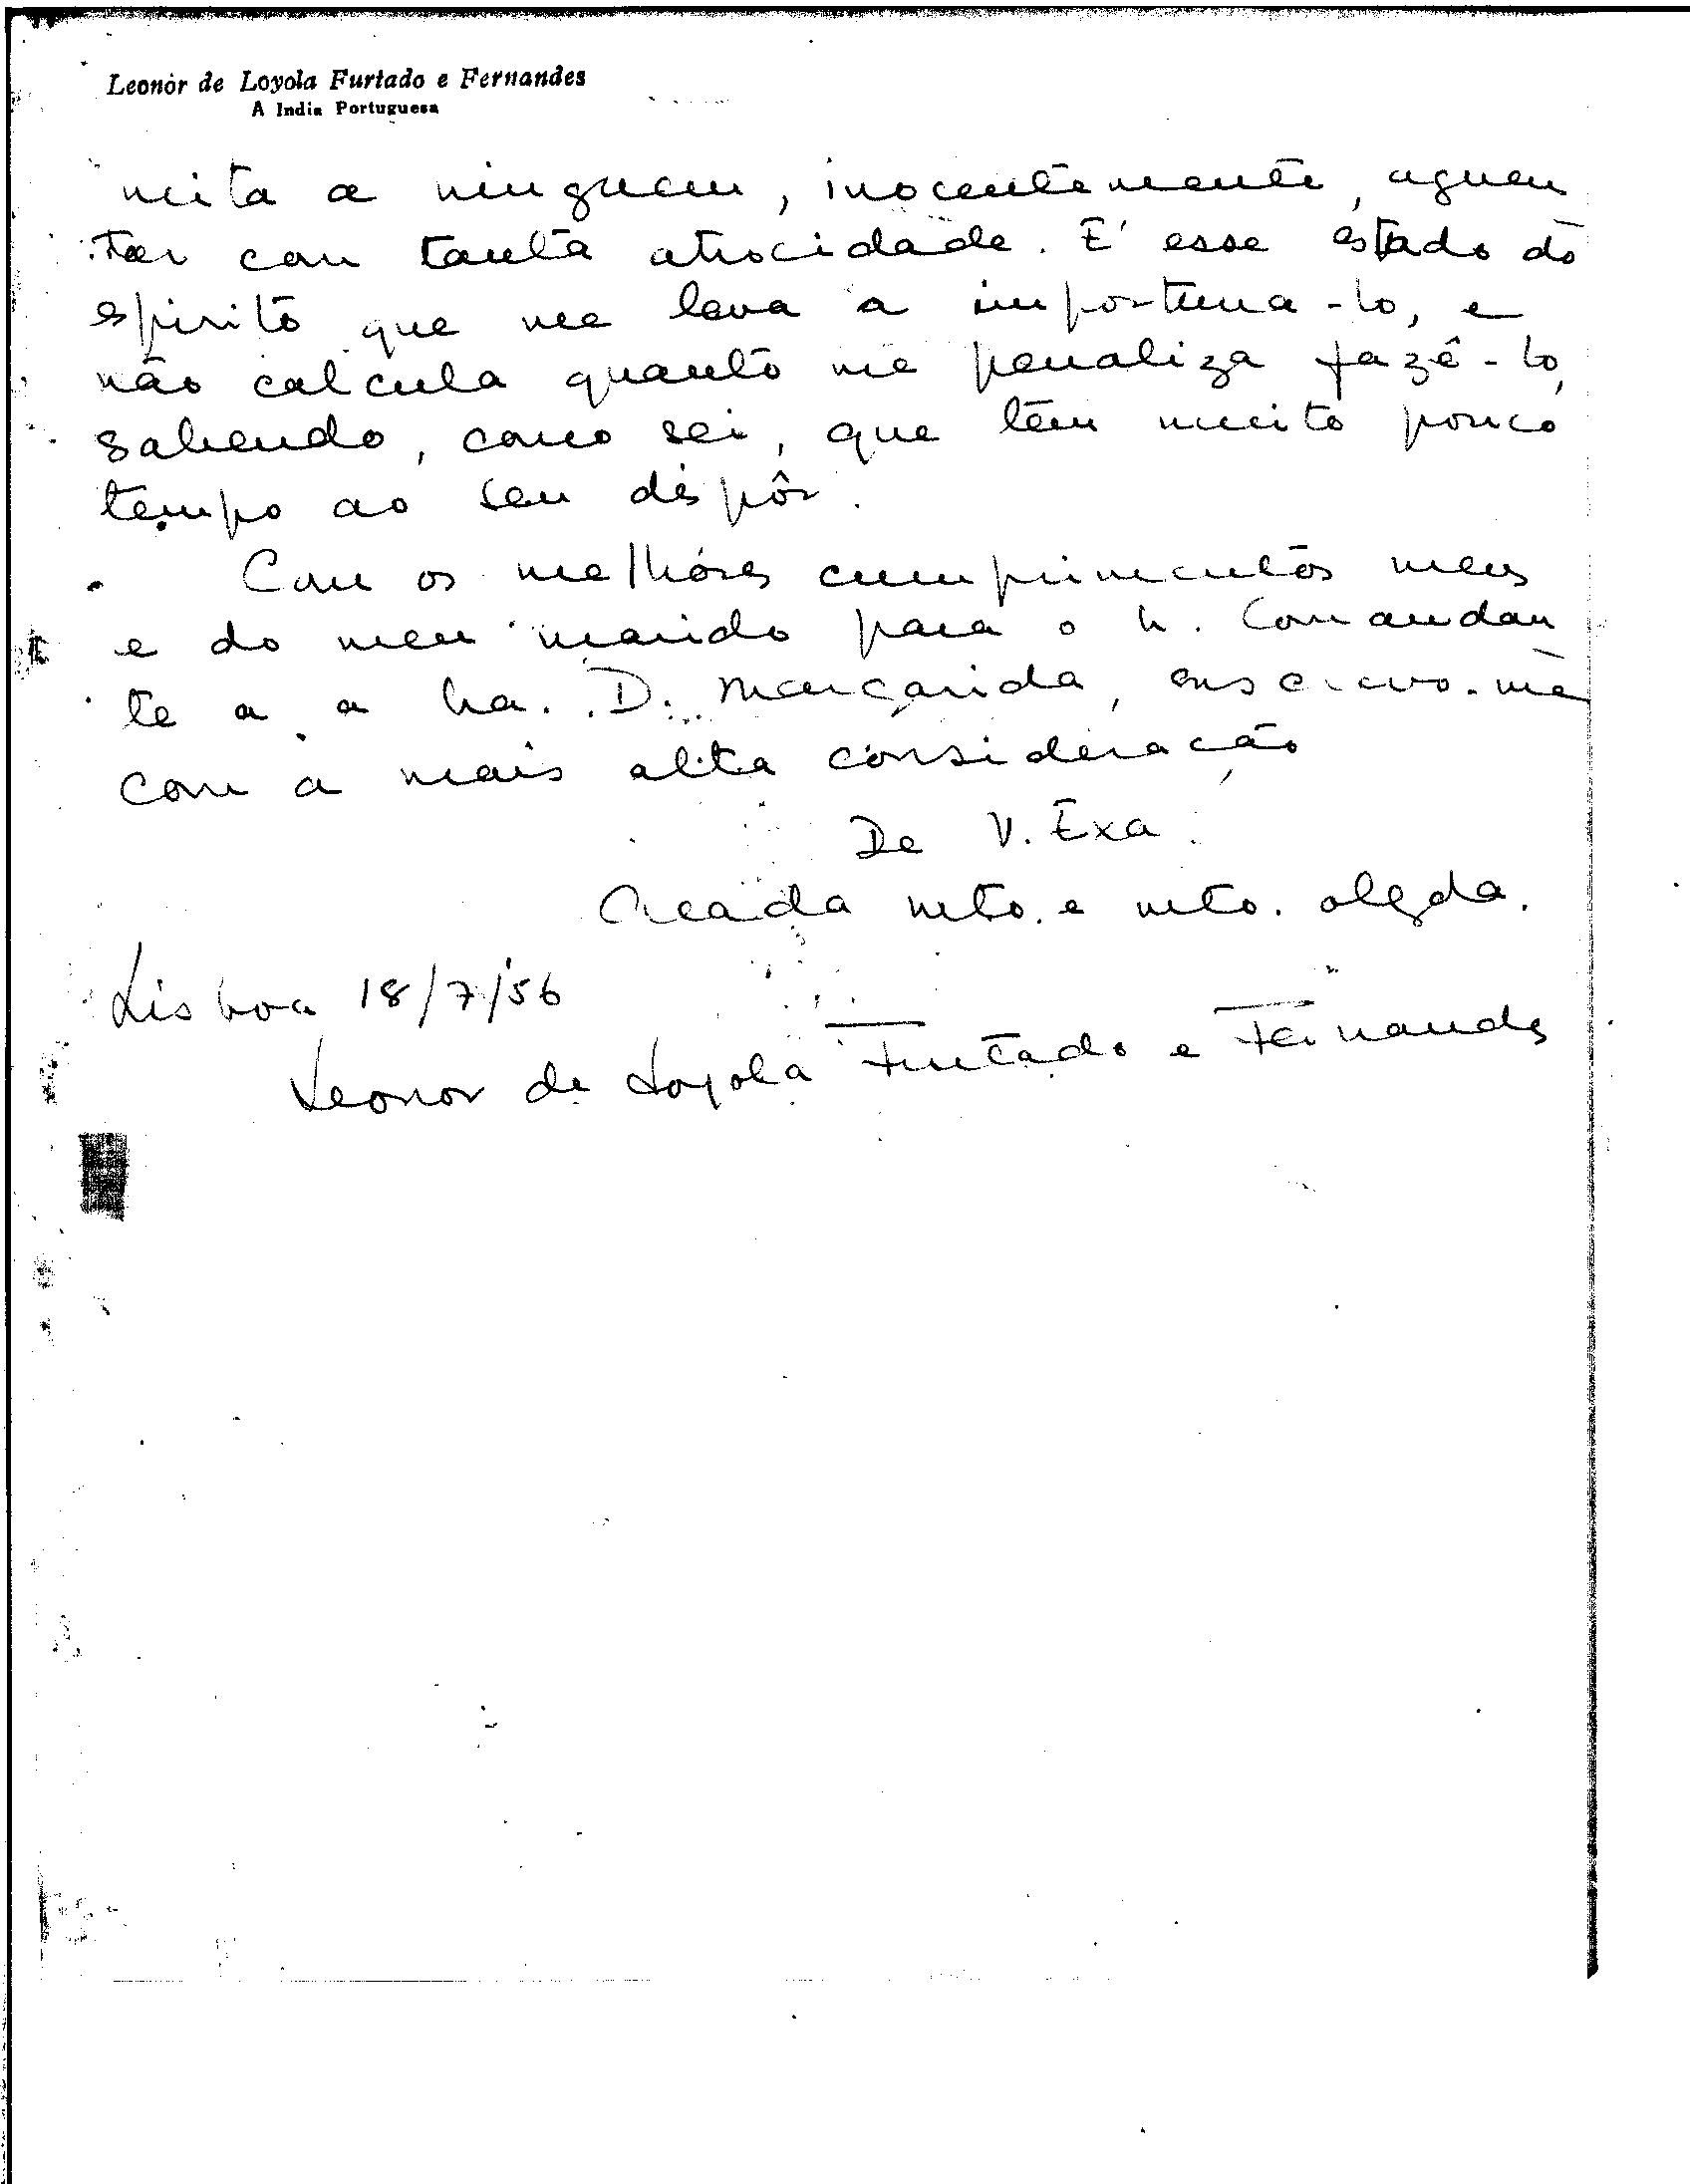 Leonor de Loyola Furtado e Fernandes
A India Portuguesa
mita a ninguem, inocentemente, aguen
tar com tanta atrocidade. É esse estado do
espirito que me leva a importuna-lo, e
não calcula quanto me penaliza fazê-lo,
sabendo, como sei, que têm muito pouco
tempo ao seu dispôr.
Com os melhores cumprimentos meus
e do meu marido para o Sr. Comandan
te e a Sra. D. Margarida, subscrevo-me
com a mais alta consideração
De V. Exa.
Creada mto. e mto. obgda.
Lisboa 18/7/56
Leonor de Loyola Furtado e Fernandes